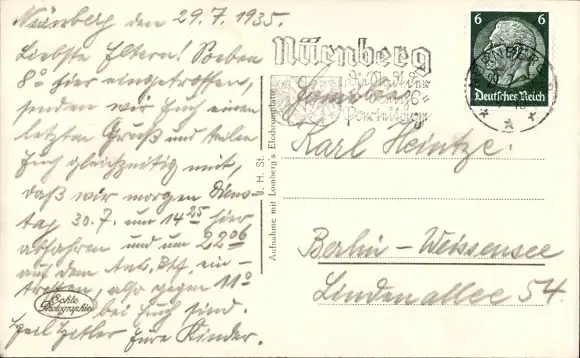 Nürnberg den 29.7.1935.
Liebste Eltern! Soeben
8° hier eingetroffen,
senden wir Euch einen
letzten Gruß und teilen
Euch gleichzeitig mit,
daß wir morgen Diens-
tag 30.7. um 14²⁵ hier
abfahren und um 22⁰⁶
auf dem Anh. Bhf. ein-
treffen, also gegen 11°
bei Euch sind.
Heil Hitler Eure Kinder.
Echte
Photographie
J. H. St.
Aufnahme mit Lomberg's Elochromplatte
Nürnberg
die Stadt der
Reichs-
parteitage
6 6
Deutsches Reich
Familie
Karl Heintze.
Berlin-Weissensee
Lindenallee 54.